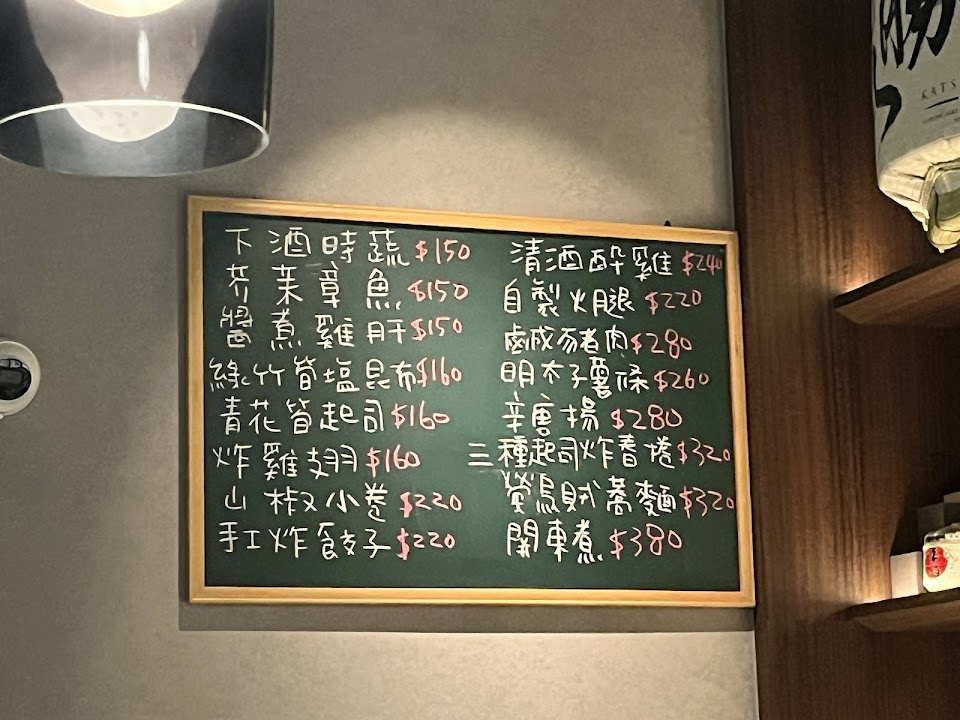 下酒時蔬 $150
芥茉章魚 $150
醬煮雞肝 $150
綠竹筍塩昆布 $160
青花筍起司 $160
炸雞翅 $160
山椒小卷 $220
手工炸餃子 $220
清酒醉雞 $240
自製火腿 $220
鹹豬肉 $280
明太子薯條 $260
辛唐揚 $280
三種起司炸春捲 $320
螢烏賊蕎麵 $320
関東煮 $380
勝
KATS